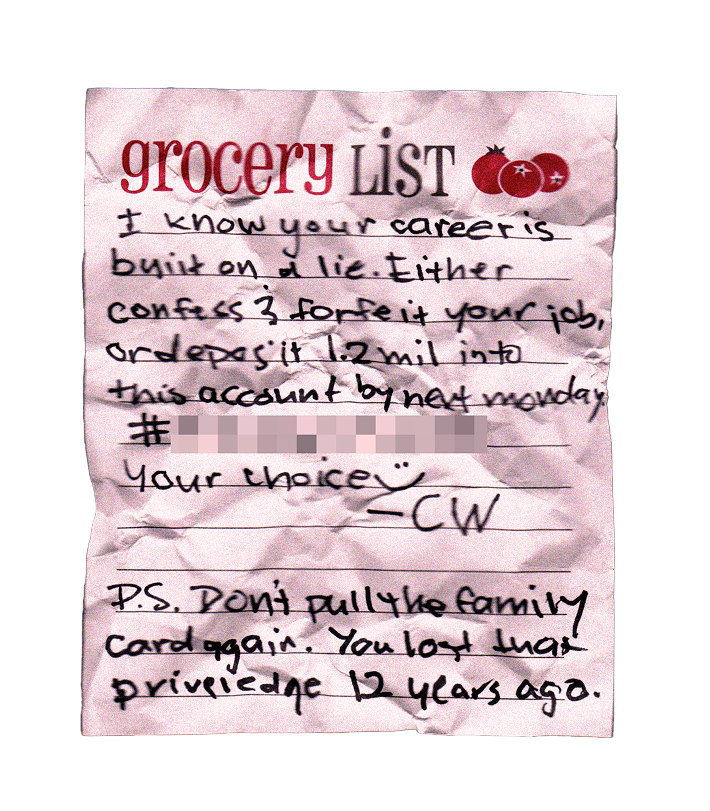 grocery LiST
I know your career is
built on a lie. Either
confess & forfeit your job,
or deposit 1.2 mil into
this account by next monday.
#
Your choice :)
- CW
P.S. Don't pull the family
card again. You lost that
priveledge 12 years ago.